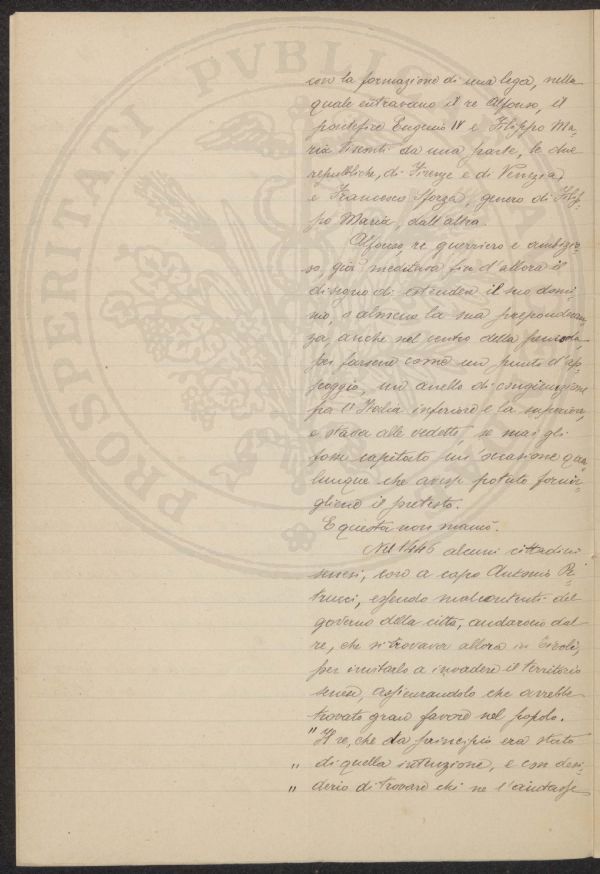 con la formazione di una lega, nella
quale entravano il re Alfonso, il
pontefice Eugenio IV e Filippo Ma=
ria Visconti da una parte, le due
repubbliche, di Firenze e di Venezia,
e Francesco Sforza, genero di Filip=
po Maria, dall'altra.
Alfonso, re guerriero e ambizio=
so, già meditava fin d'allora il
disegno di estendere il suo domi=
nio, o almeno la sua preponderan=
za, anche nel centro della penisola,
per farsene come un punto d'ap=
poggio, un anello di congiunzione
fra l'Italia inferiore e la superiore,
e stava alle vedette, se mai gli
fosse capitato un'occasione qua=
lunque che avesse potuto fornir=
gliene il pretesto.
E questa non mancò.
Nel 1446 alcuni cittadini
senesi, con a capo Antonio Pe=
trucci, essendo malcontenti del
governo della città, andarono dal
re, che si trovava allora in Tivoli,
per invitarlo a invadere il territorio
senese, assicurandolo che avrebbe
trovato gran favore nel popolo.
"Il re, che da principio era stato
" di quella intenzione, e con desi=
" derio di trovare chi ne l'aiutasse
PROSPERITATI PVBLICAE